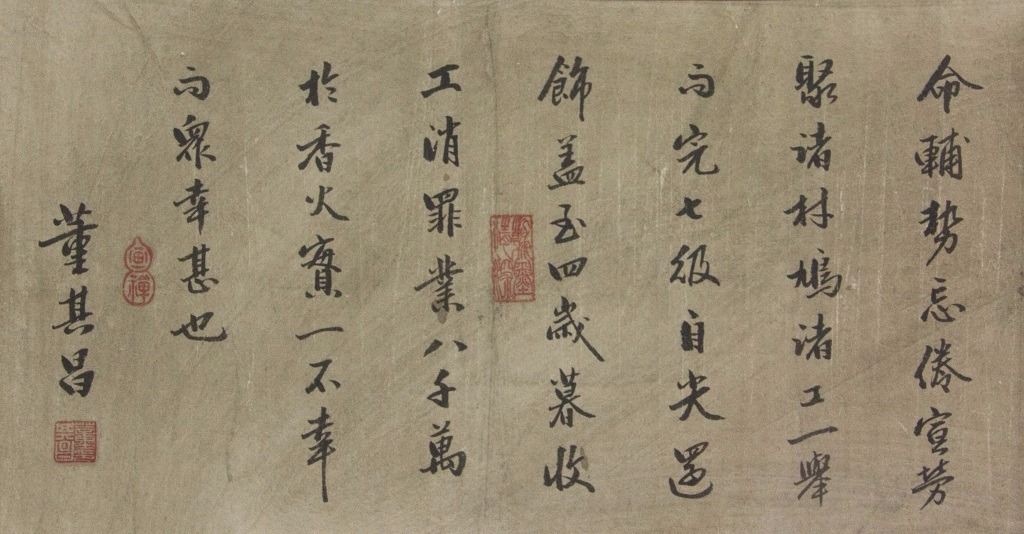 命輔勢忘倦宣勞
聚諸材鳩諸工一舉
而完七級自尖還
飾蓋至四歲暮收
工消罪業八千萬
於香火實一不幸
而眾幸甚也
董其昌